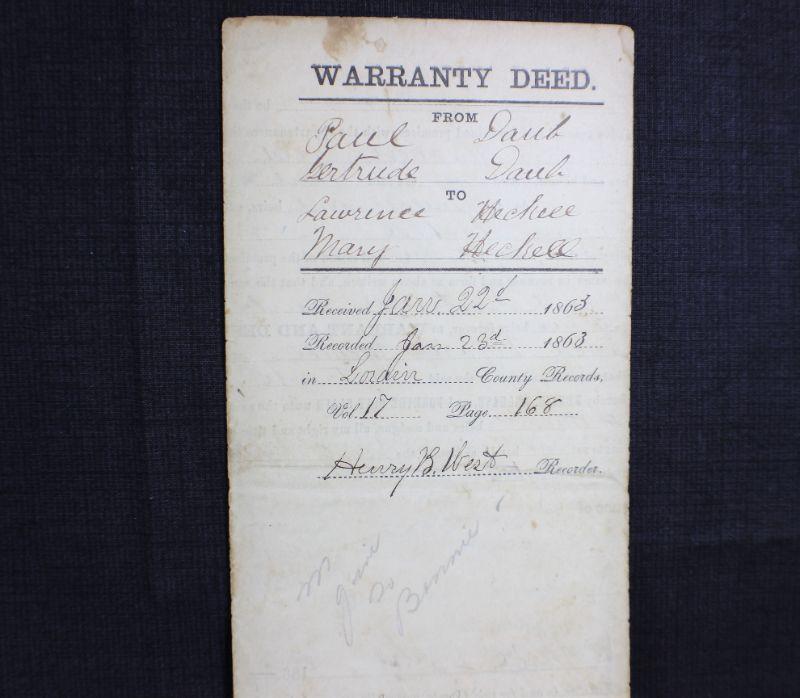 WARRANTY DEED.
FROM
Paul Daub
Gertrude Daub
TO
Lawrence Heckell
Mary Heckell
Received Jan. 22d 1863
Recorded Jan 23d 1863
in Lorain County Records,
Vol 17 Page 168
Henry B. West Recorder.
Bennie